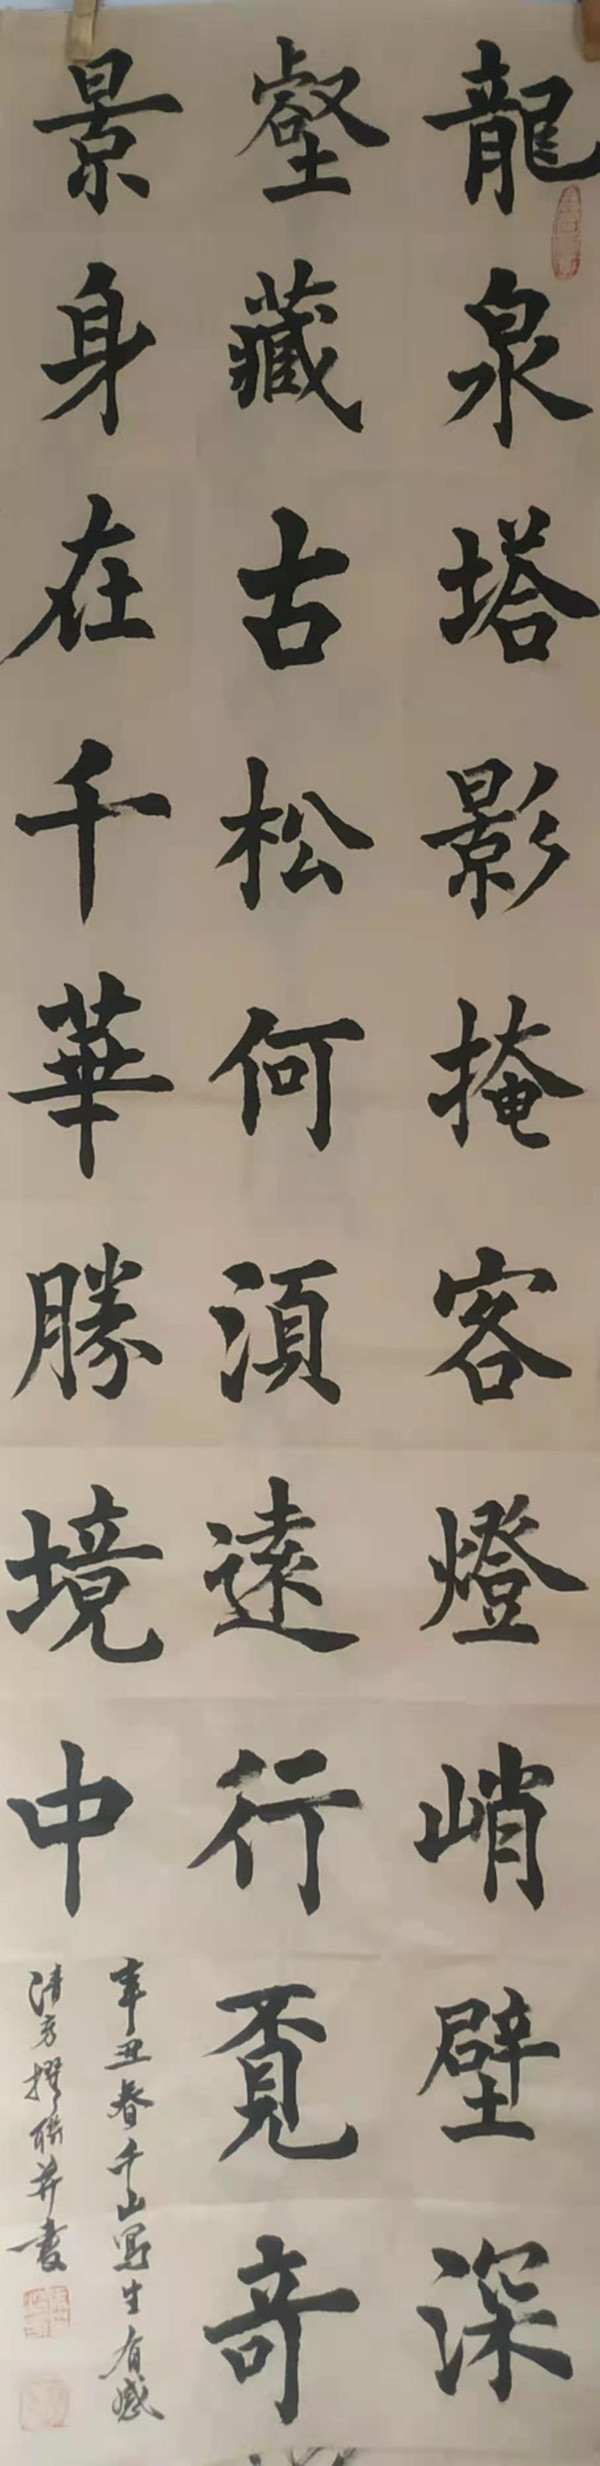 龍泉塔影掩客燈峭壁深
壑藏古松何須遠行覔奇
景身在千華勝境中
辛丑春千山寫生有感
清秀撰联並書